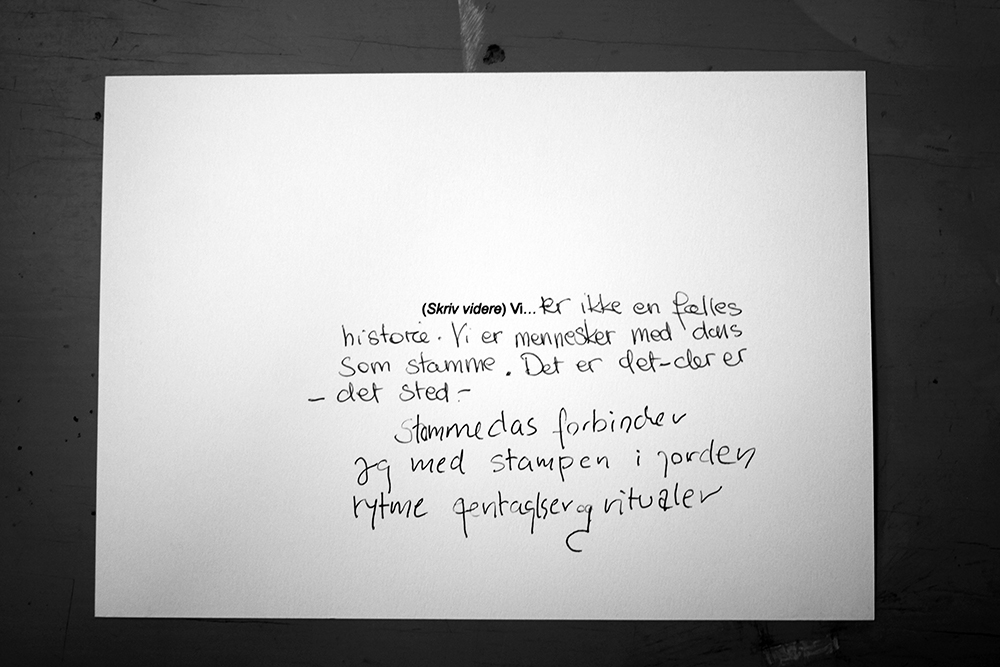 (Skriv videre) Vi... er ikke en fælles
historie. Vi er mennesker med dans
som stamme. Det er det-der er
- det sted -
Stammedas forbinder
og med stampen i jorden
rytme gentaglser og ritualer